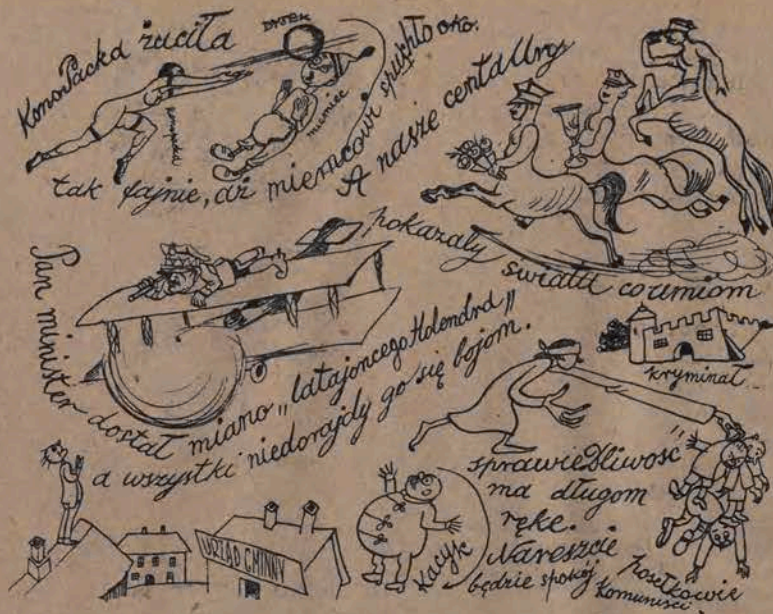 KonoPacka żuciła
DYSEK
konopacka
niemiec
tak fajnie, aż miemcowi spuchło oko.
A nasze centaUry
pokazały światu co umiom
Pan minister dostał miano „latajoncego Holendra"
a wszystki niedorajdy go się bojom.
kryminał
sprawiedliwość
ma długom
ręke.
Nareszcie
będzie spokój
posełkowie
komuniści
Kacyk
URZĄD GMINNY